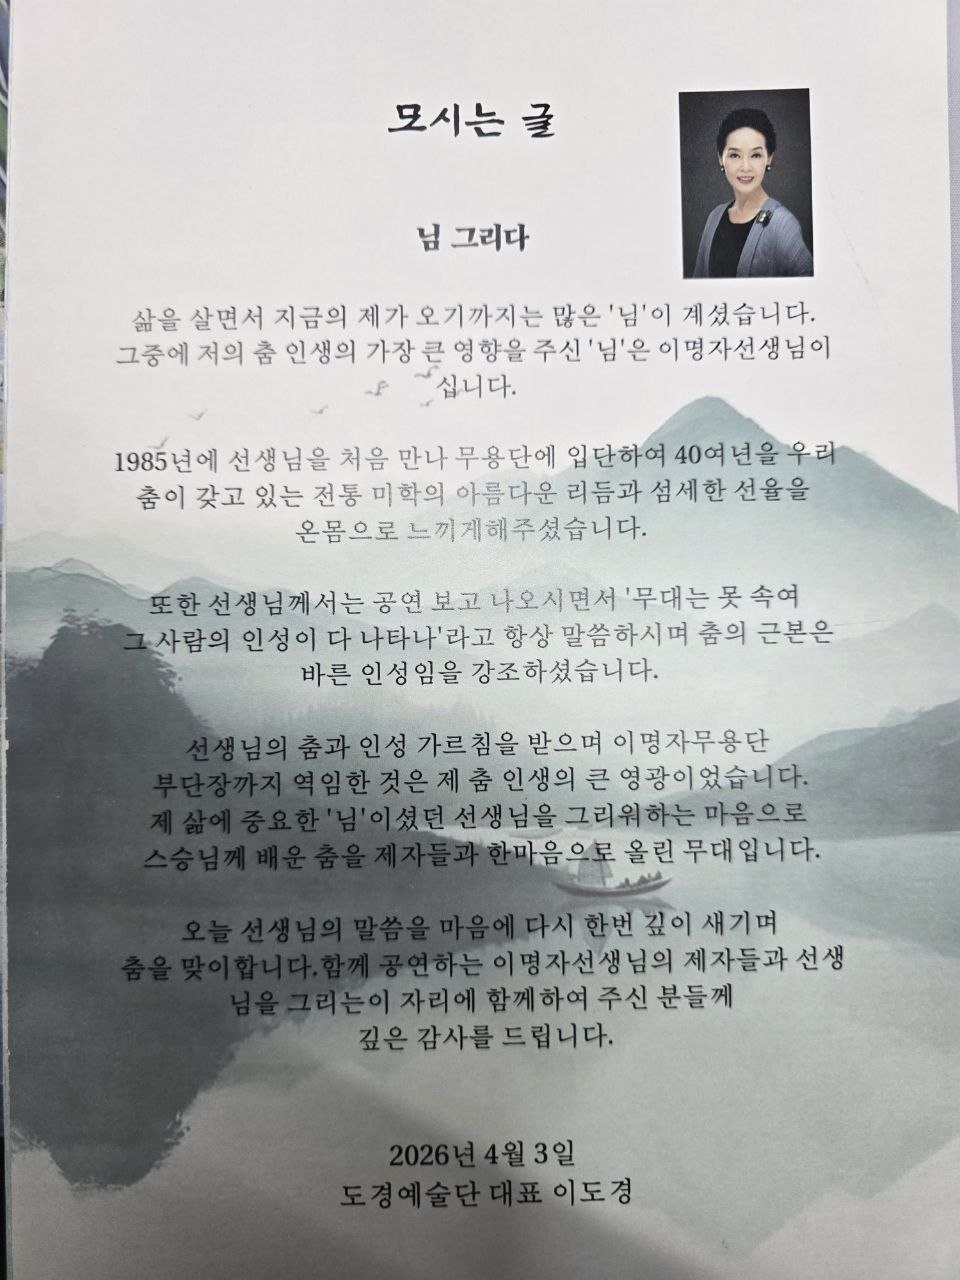 모시는 글
님 그리다
삶을 살면서 지금의 제가 오기까지는 많은 '님'이 계셨습니다.
그중에 저의 춤 인생의 가장 큰 영향을 주신 '님'은 이명자선생님이
십니다.
1985년에 선생님을 처음 만나 무용단에 입단하여 40여년을 우리
춤이 갖고 있는 전통 미학의 아름다운 리듬과 섬세한 선율을
온몸으로 느끼게해주셨습니다.
또한 선생님께서는 공연 보고 나오시면서 '무대는 못 속여
그 사람의 인성이 다 나타나'라고 항상 말씀하시며 춤의 근본은
바른 인성임을 강조하셨습니다.
선생님의 춤과 인성 가르침을 받으며 이명자무용단
부단장까지 역임한 것은 제 춤 인생의 큰 영광이었습니다.
제 삶에 중요한 '님'이셨던 선생님을 그리워하는 마음으로
스승님께 배운 춤을 제자들과 한마음으로 올린 무대입니다.
오늘 선생님의 말씀을 마음에 다시 한번 깊이 새기며
춤을 맞이합니다.함께 공연하는 이명자선생님의 제자들과 선생
님을 그리는이 자리에 함께하여 주신 분들께
깊은 감사를 드립니다.
2026년 4월 3일
도경예술단 대표 이도경